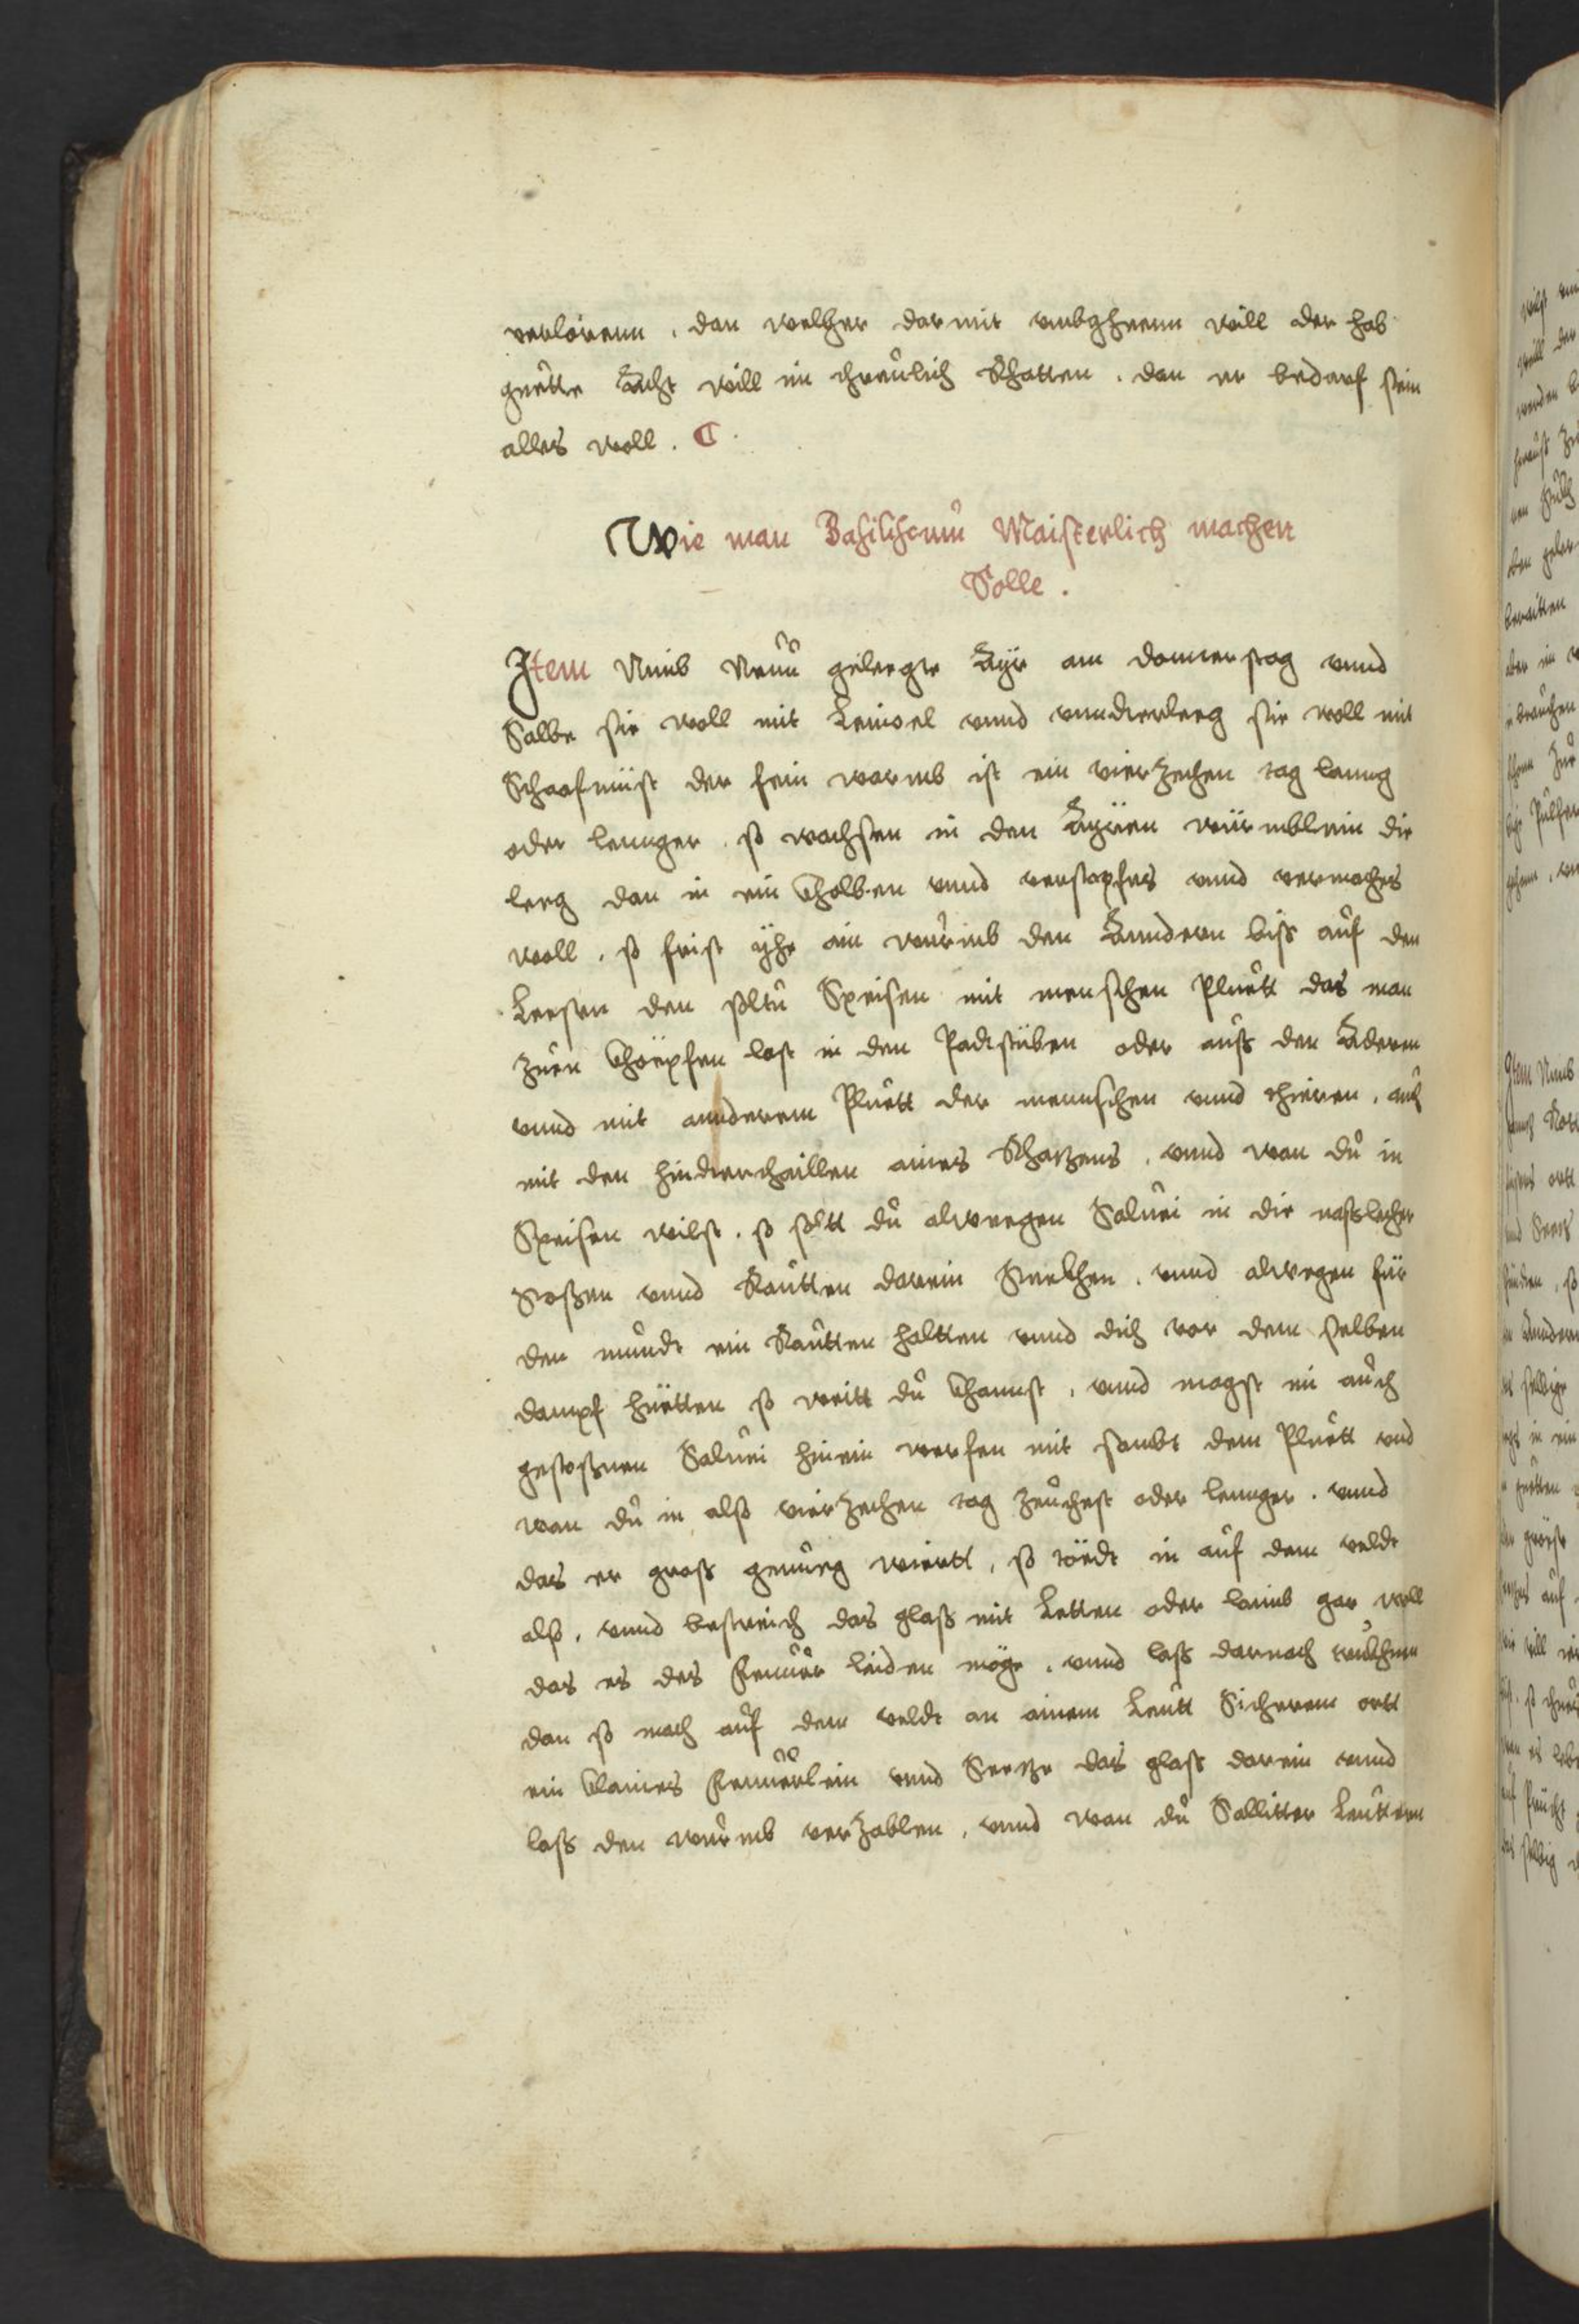 verlorenn . dan welher dar mit vmbgheenn will der hab
guette Acht will im threulich Rhatten . dan er bedarf sein
alles woll .
Wie man Basiliscum Maisterlich machen
Solle .
Item Nimb Neun gelegte Ayr am donnerstag vnnd
Salbe sie woll mit Leinoel vnnd vnnderleg sie woll mit
Schaafmist der fein warmb ist ein vierzechen tag lanng
oder lennger . so wachsen in den Ayren würmblein die
leeg dan in ein kholben vnnd verstopfes vnnd vermaches
woll . so frist yhe ain wurmb den Anndern biss auf den
Leesten den soltu Speisen mit menschen Pluett das man
zuen khöepfen last in den Padtstüben oder auss den Adern
vnnd mit annderem Pluett der mennschen vnnd thieren . auch
mit den hinderthaillen aines Khatzens . vnnd wan du in
Speisen wilst . so soltt du alweegen Saluei in die nasslecher
Stossen vnnd Rautten darein Steckhen . vnnd alwegen für
den mundt ein Rautten haltten vnnd dich vor dem selben
dampf hüetten so weitt du khannst . vnnd magst im auch
gestossnen Saluei hinein werfen mit sambt dem Pluett vnd
wan du in also vierzechen tag zeuchest oder lennger . vnnd
das er gross genueg wiertt . so tödt in auf dem veldt
also . vnnd bestreich das glass mit Letten oder laimb gar woll
das es das Feuuer leiden möge . vnnd lass darnach
dan so mach auf dem veldt an ainem Leutt Sicherem ortt
ein klaines Feuuerlein vnnd Seetze das glass darein vnnd
lass den wurmb verzablen . vnnd wan du Sallitter Leuttern
Item Nimb